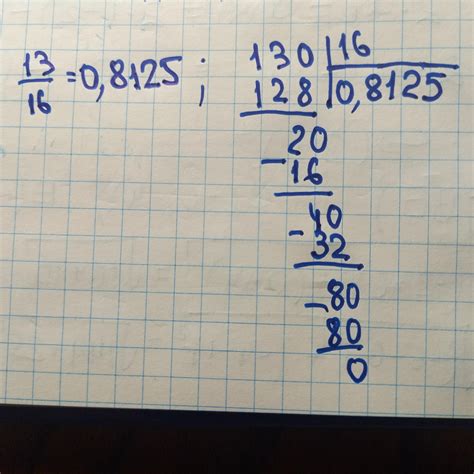 13/16 = 0,8125 ; 130 | 16
128 | 0,8125
20
- 16
40
- 32
- 80
80
0